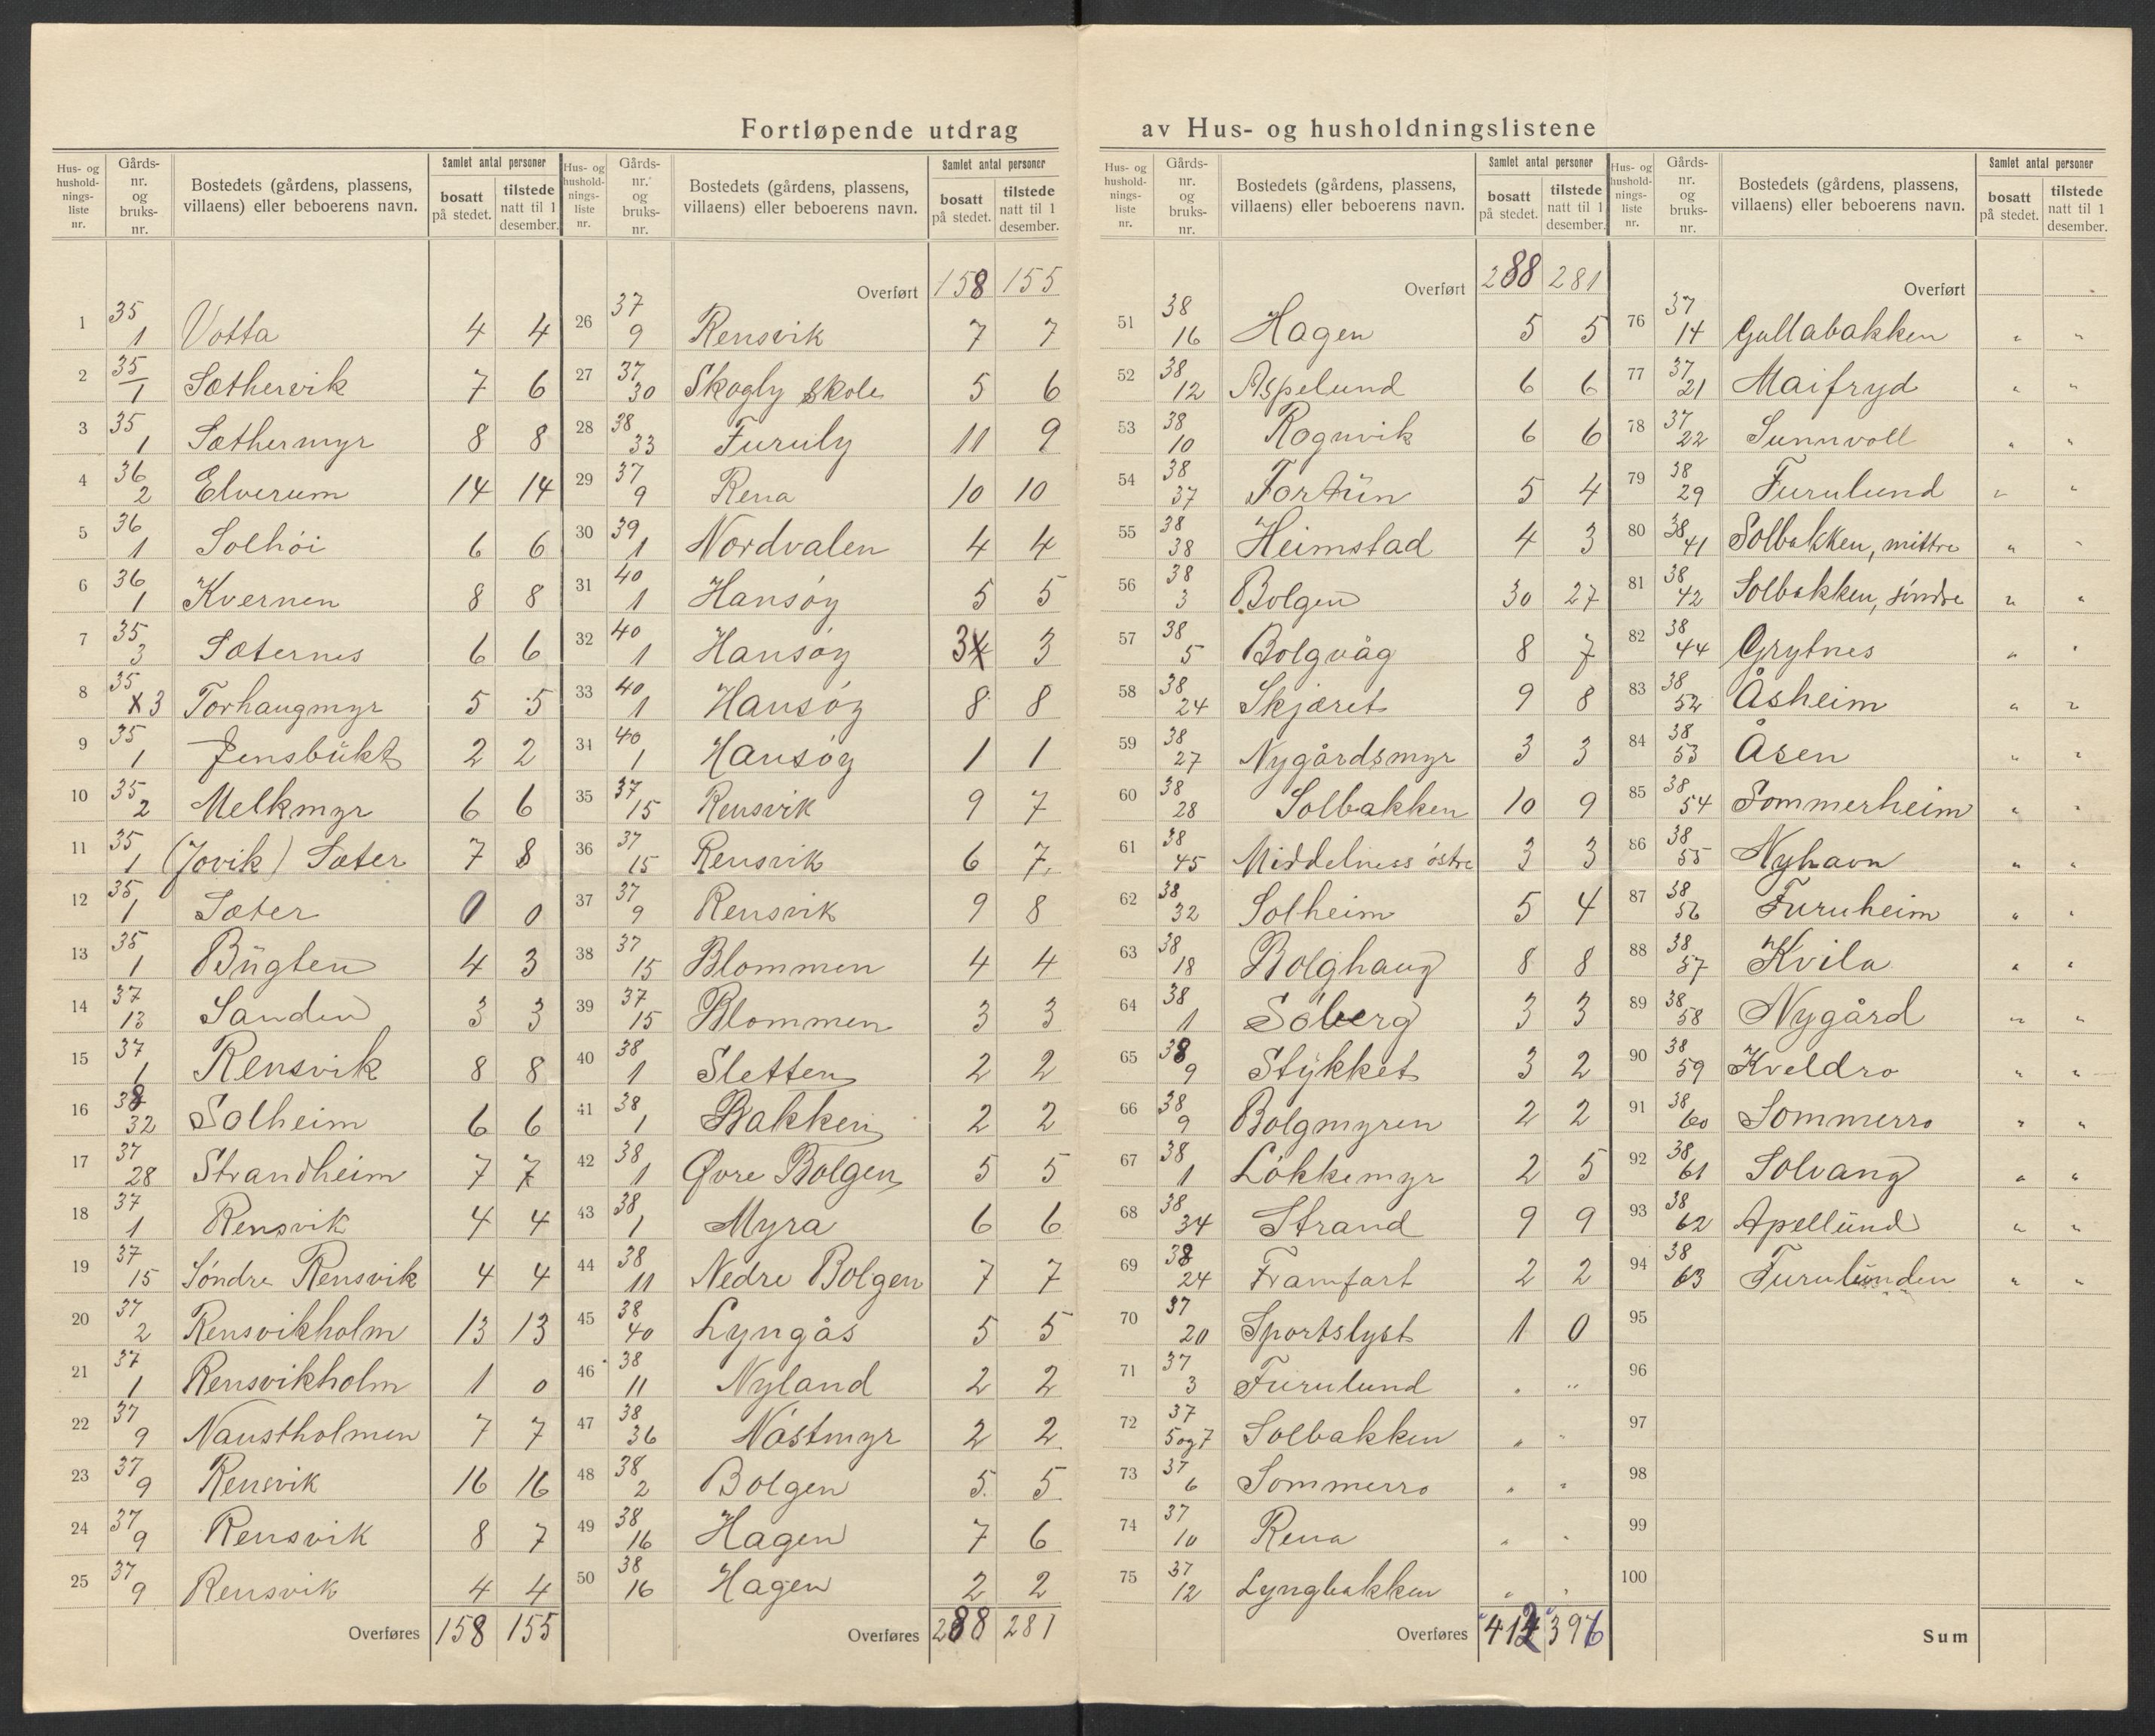 Fortløpende utdrag av Hus- og husholdningslistene
Hus- og husholdnings-liste nr. Gårds-nr. og bruks-nr. Bostedets (gårdens, plassens, villaens) eller beboerens navn. Samlet antal personer bosatt på stedet. tilstede natt til 1 desember.
1 35 1 Votta 4 4
2 35 1 Sæthervik 7 6
3 35 1 Sæthermyr 8 8
4 36 2 Elverum 14 14
5 36 1 Solhöi 6 6
6 36 1 Kvernen 8 8
7 35 3 Sæternes 6 6
8 35 3 Torhaugmyr 5 5
9 35 1 Jensbukt 2 2
10 35 2 Melkmyr 6 6
11 35 1 (Jovik) Sæter 7 8
12 35 1 Sæter 0 0
13 35 1 Bügten 4 3
14 37 13 Sanden 3 3
15 37 1 Rensvik 8 8
16 38 32 Solheim 6 6
17 37 28 Strandheim 7 7
18 37 1 Rensvik 4 4
19 37 15 Söndre Rensvik 4 4
20 37 2 Rensvikholm 13 13
21 37 1 Rensvikholm 1 0
22 37 9 Naustholmen 7 7
23 37 9 Rensvik 16 16
24 37 9 Rensvik 8 7
25 37 9 Rensvik 4 4
Overføres 158 155
Hus- og husholdnings-liste nr. Gårds-nr. og bruks-nr. Bostedets (gårdens, plassens, villaens) eller beboerens navn. Samlet antal personer bosatt på stedet. tilstede natt til 1 desember.
Overført 158 155
26 37 9 Rensvik 7 7
27 37 30 Skogly skole 5 6
28 38 33 Furuly 11 9
29 37 9 Rena 10 10
30 39 1 Nordvalen 4 4
31 40 1 Hansöy 5 5
32 40 1 Hansöy 3 3
33 40 1 Hansöy 8 8
34 40 1 Hansöy 1 1
35 37 15 Rensvik 9 7
36 37 15 Rensvik 6 7
37 37 9 Rensvik 9 8
38 37 15 Blommen 4 4
39 37 15 Blommen 3 3
40 38 1 Sletten 2 2
41 38 1 Bakken 2 2
42 38 1 Øvre Bolgen 5 5
43 38 1 Myra 6 6
44 38 11 Nedre Bolgen 7 7
45 38 40 Lyngås 5 5
46 38 11 Nyland 2 2
47 38 36 Nåstmyr 2 2
48 38 2 Bolgen 5 5
49 38 16 Hagen 7 6
50 38 16 Hagen 2 2
Overføres 288 281
Hus- og husholdnings-liste nr. Gårds-nr. og bruks-nr. Bostedets (gårdens, plassens, villaens) eller beboerens navn. Samlet antal personer bosatt på stedet. tilstede natt til 1 desember.
Overført 288 281
51 38 16 Hagen 5 5
52 38 12 Aspelund 6 6
53 38 10 Rognvik 6 6
54 38 37 Fortün 5 4
55 38 38 Heimstad 4 3
56 38 3 Bolgen 30 27
57 38 5 Bolgvåg 8 7
58 38 24 Skjæret 9 8
59 38 27 Nygårdsmyr 3 3
60 38 28 Solbakken 10 9
61 38 45 Middelness östre 3 3
62 38 32 Solheim 5 4
63 38 18 Bolghaug 8 8
64 38 1 Söberg 3 3
65 38 9 Stykket 3 2
66 38 9 Bolgmyren 2 2
67 38 1 Lökkemyr 2 5
68 38 34 Strand 9 9
69 38 24 Framfart 2 2
70 37 20 Sportslyst 1 0
71 37 3 Furulund " "
72 37 5 og 7 Solbakken " "
73 37 6 Sommerro " "
74 37 10 Rena " "
75 37 12 Lyngbakken " "
Overføres 412 396
Hus- og husholdnings-liste nr. Gårds-nr. og bruks-nr. Bostedets (gårdens, plassens, villaens) eller beboerens navn. Samlet antal personer bosatt på stedet. tilstede natt til 1 desember.
Overført
76 37 14 Gullabakken " "
77 37 21 Maifryd " "
78 37 22 Sunnvoll " "
79 38 29 Furulund " "
80 38 41 Solbakken, mittre " "
81 38 42 Solbakken, söndre " "
82 38 44 Grytnes " "
83 38 52 Åsheim " "
84 38 53 Åsen " "
85 38 54 Sommerheim " "
86 38 55 Nyhavn " "
87 38 56 Furuheim " "
88 38 57 Kvila " "
89 38 58 Nygård " "
90 38 59 Kveldro " "
91 38 60 Sommerro " "
92 38 61 Solvang " "
93 38 62 Apellünd " "
94 38 63 Furulunden " "
95
96
97
98
99
100
Sum